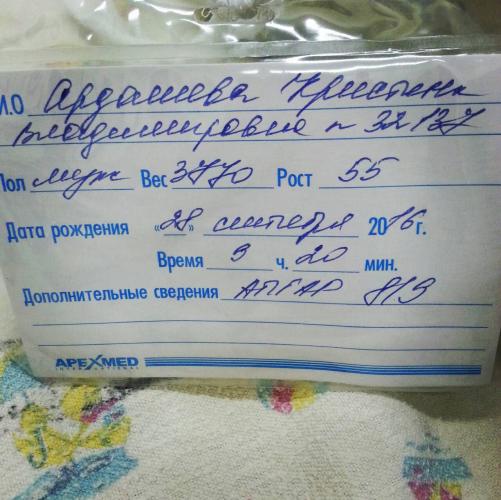 И.О Ардашева Кристина
Владимировна п 32137
Пол муж Вес 3770 Рост 55
Дата рождения «28» сентября 2016 г.
Время 9 ч. 20 мин.
Дополнительные сведения АПГАР 8/9
APEXMED
INTERNATIONAL